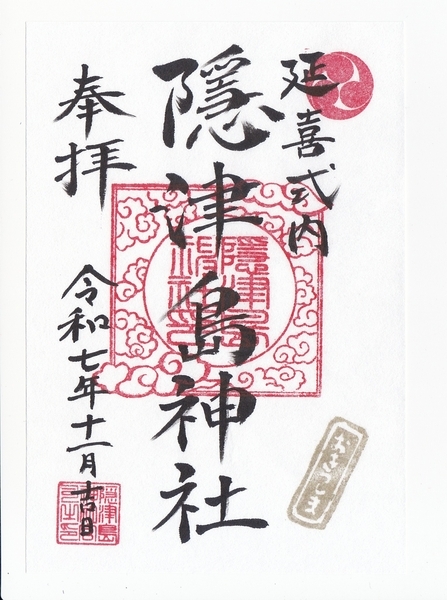 延喜式内
隠津島神社
奉拝
令和七年十一月吉日
隠津島神社印
おきつしま
隠津島